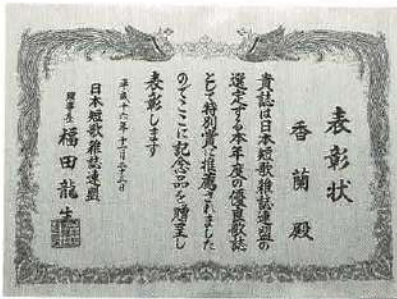 表彰状
香蘭殿
貴誌は日本短歌雑誌連盟の
選定する本年度の優良歌誌
として特別賞に推薦されました
のでここに記念品を贈呈し
表彰します
平成十六年十一月二十三日
日本短歌雑誌連盟
理事長 福田龍生